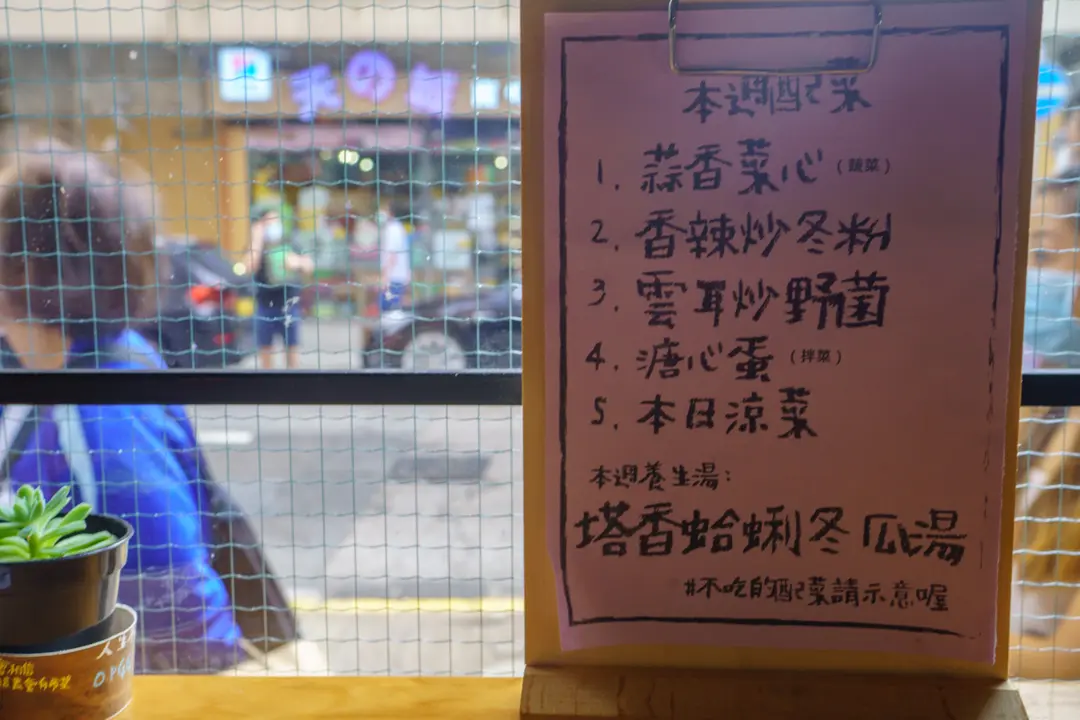 本週配菜
1. 蒜香菜心（蔬菜）
2. 香辣炒冬粉
3. 雲耳炒野菌
4. 溏心蛋（拌菜）
5. 本日涼菜
本週養生湯：
塔香蛤蜊冬瓜湯
#不吃的配菜請示意喔
人生